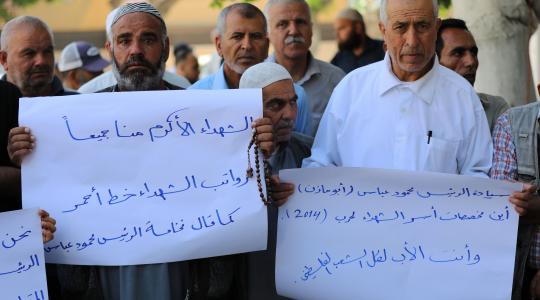 الشهداء الأكرم منا جميعاً
رواتب الشهداء خط أحمر
كما قال فخامة الرئيس محمود عباس
سيادة الرئيس محمود عباس (أبو مازن)
أين مخصصات أسر الشهداء لحرب (2014).
وأنت الأب لكل الشعب الفلسطيني.
نحن